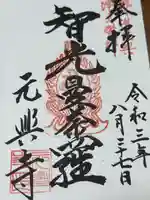 奉拝
令和三年
八月三十七日
智光曼荼羅
元興寺